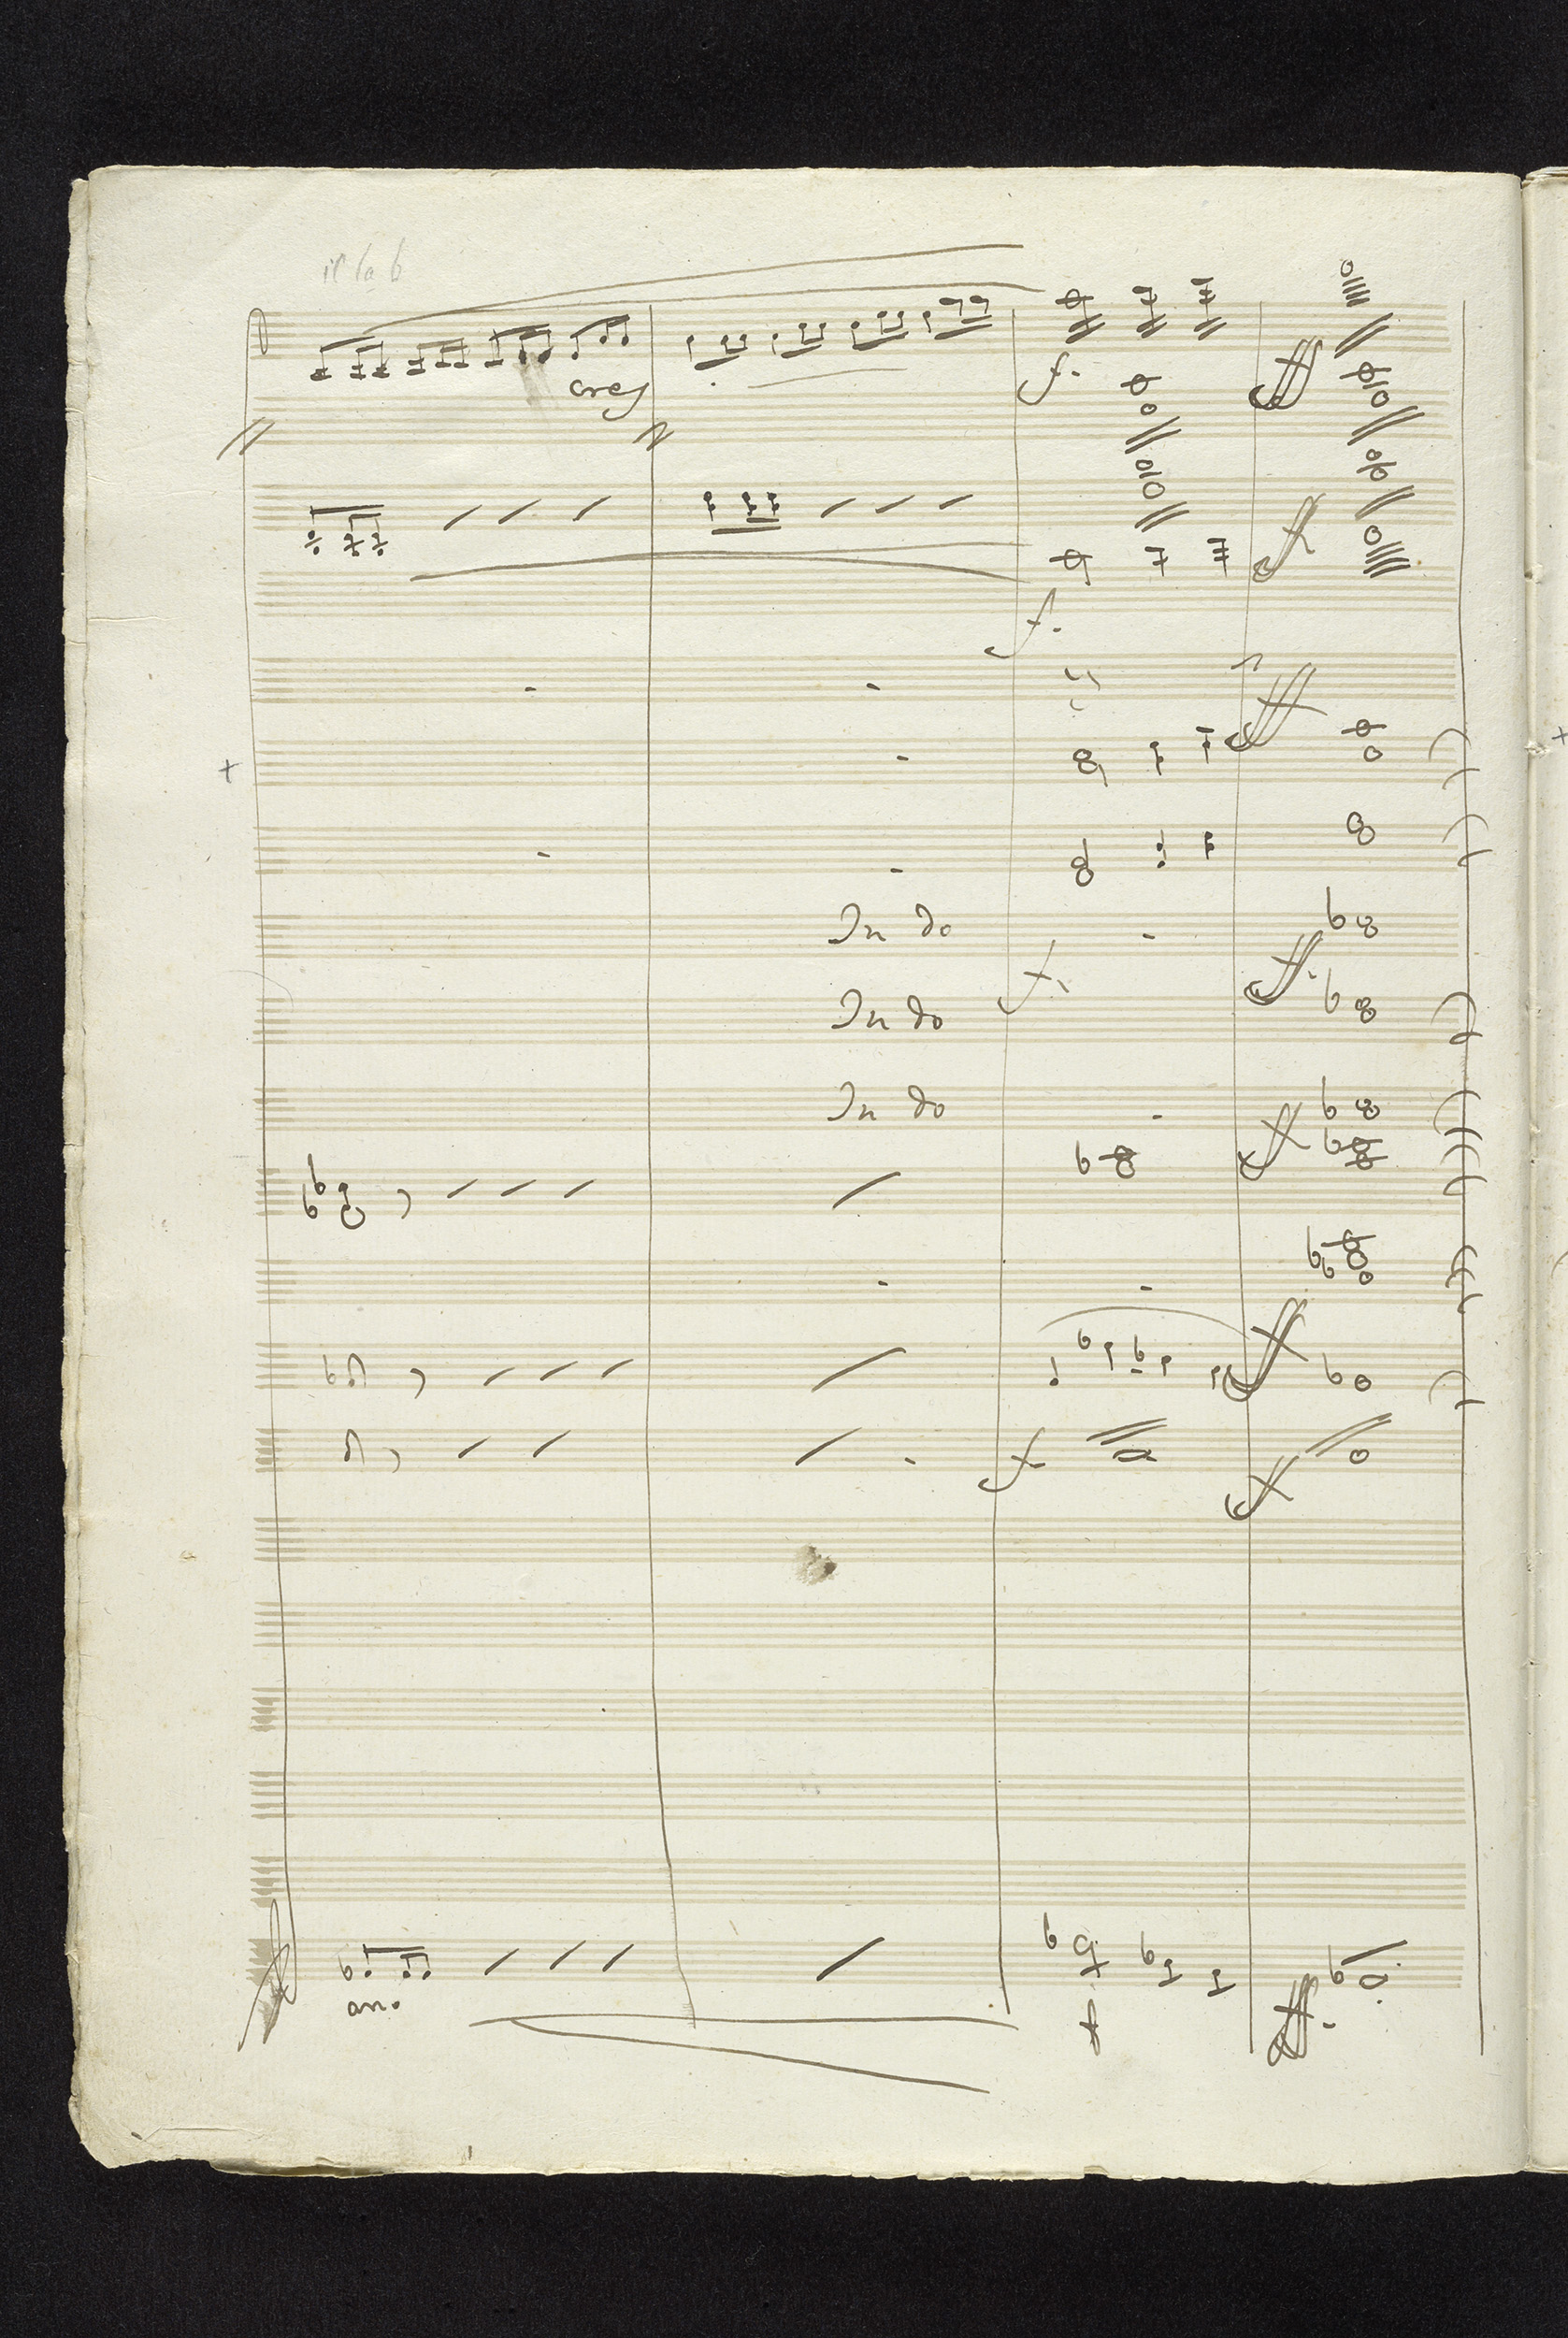 cres
f.
ff
ff
f.
ff
In do
f.
ff.
In do
In do
ff
ff
f
ff
arco
f
ff.